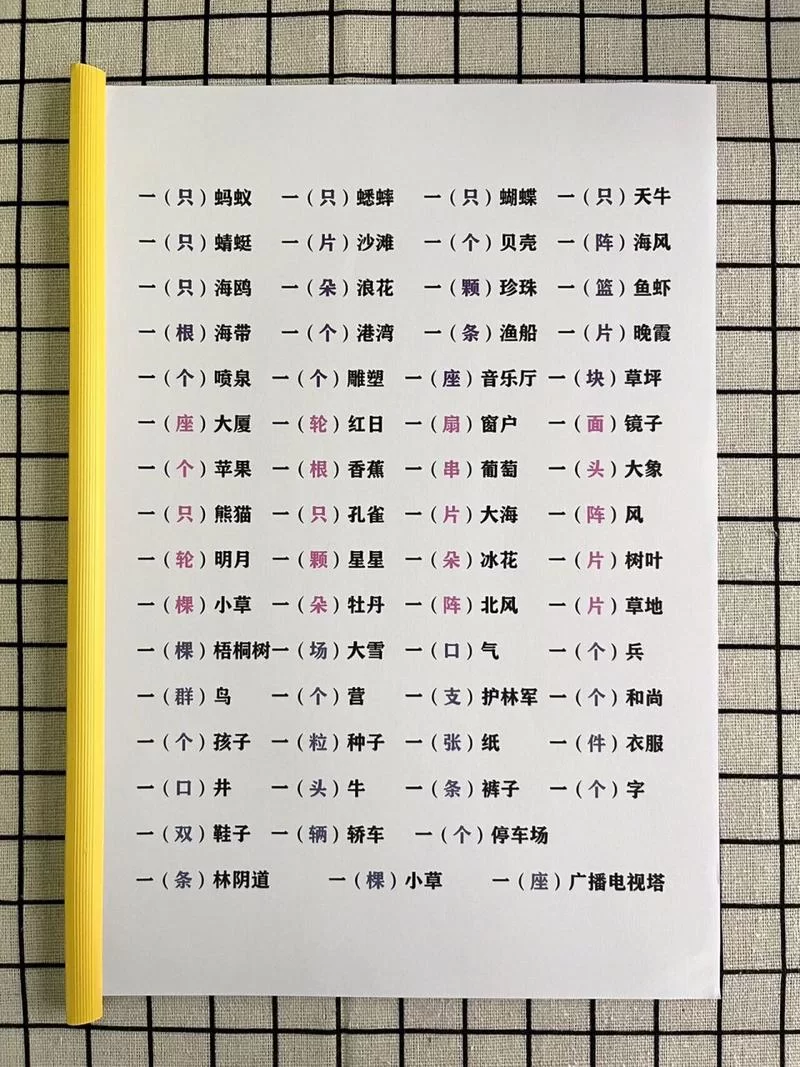 一（只）蚂蚁 一（只）蟋蟀 一（只）蝴蝶 一（只）天牛
一（只）蜻蜓 一（片）沙滩 一（个）贝壳 一（阵）海风
一（只）海鸥 一（朵）浪花 一（颗）珍珠 一（篮）鱼虾
一（根）海带 一（个）港湾 一（条）渔船 一（片）晚霞
一（个）喷泉 一（个）雕塑 一（座）音乐厅 一（块）草坪
一（座）大厦 一（轮）红日 一（扇）窗户 一（面）镜子
一（个）苹果 一（根）香蕉 一（串）葡萄 一（头）大象
一（只）熊猫 一（只）孔雀 一（片）大海 一（阵）风
一（轮）明月 一（颗）星星 一（朵）冰花 一（片）树叶
一（棵）小草 一（朵）牡丹 一（阵）北风 一（片）草地
一（棵）梧桐树 一（场）大雪 一（口）气 一（个）兵
一（群）鸟 一（个）营 一（支）护林军 一（个）和尚
一（个）孩子 一（粒）种子 一（张）纸 一（件）衣服
一（口）井 一（头）牛 一（条）裤子 一（个）字
一（双）鞋子 一（辆）轿车 一（个）停车场
一（条）林阴道 一（棵）小草 一（座）广播电视塔